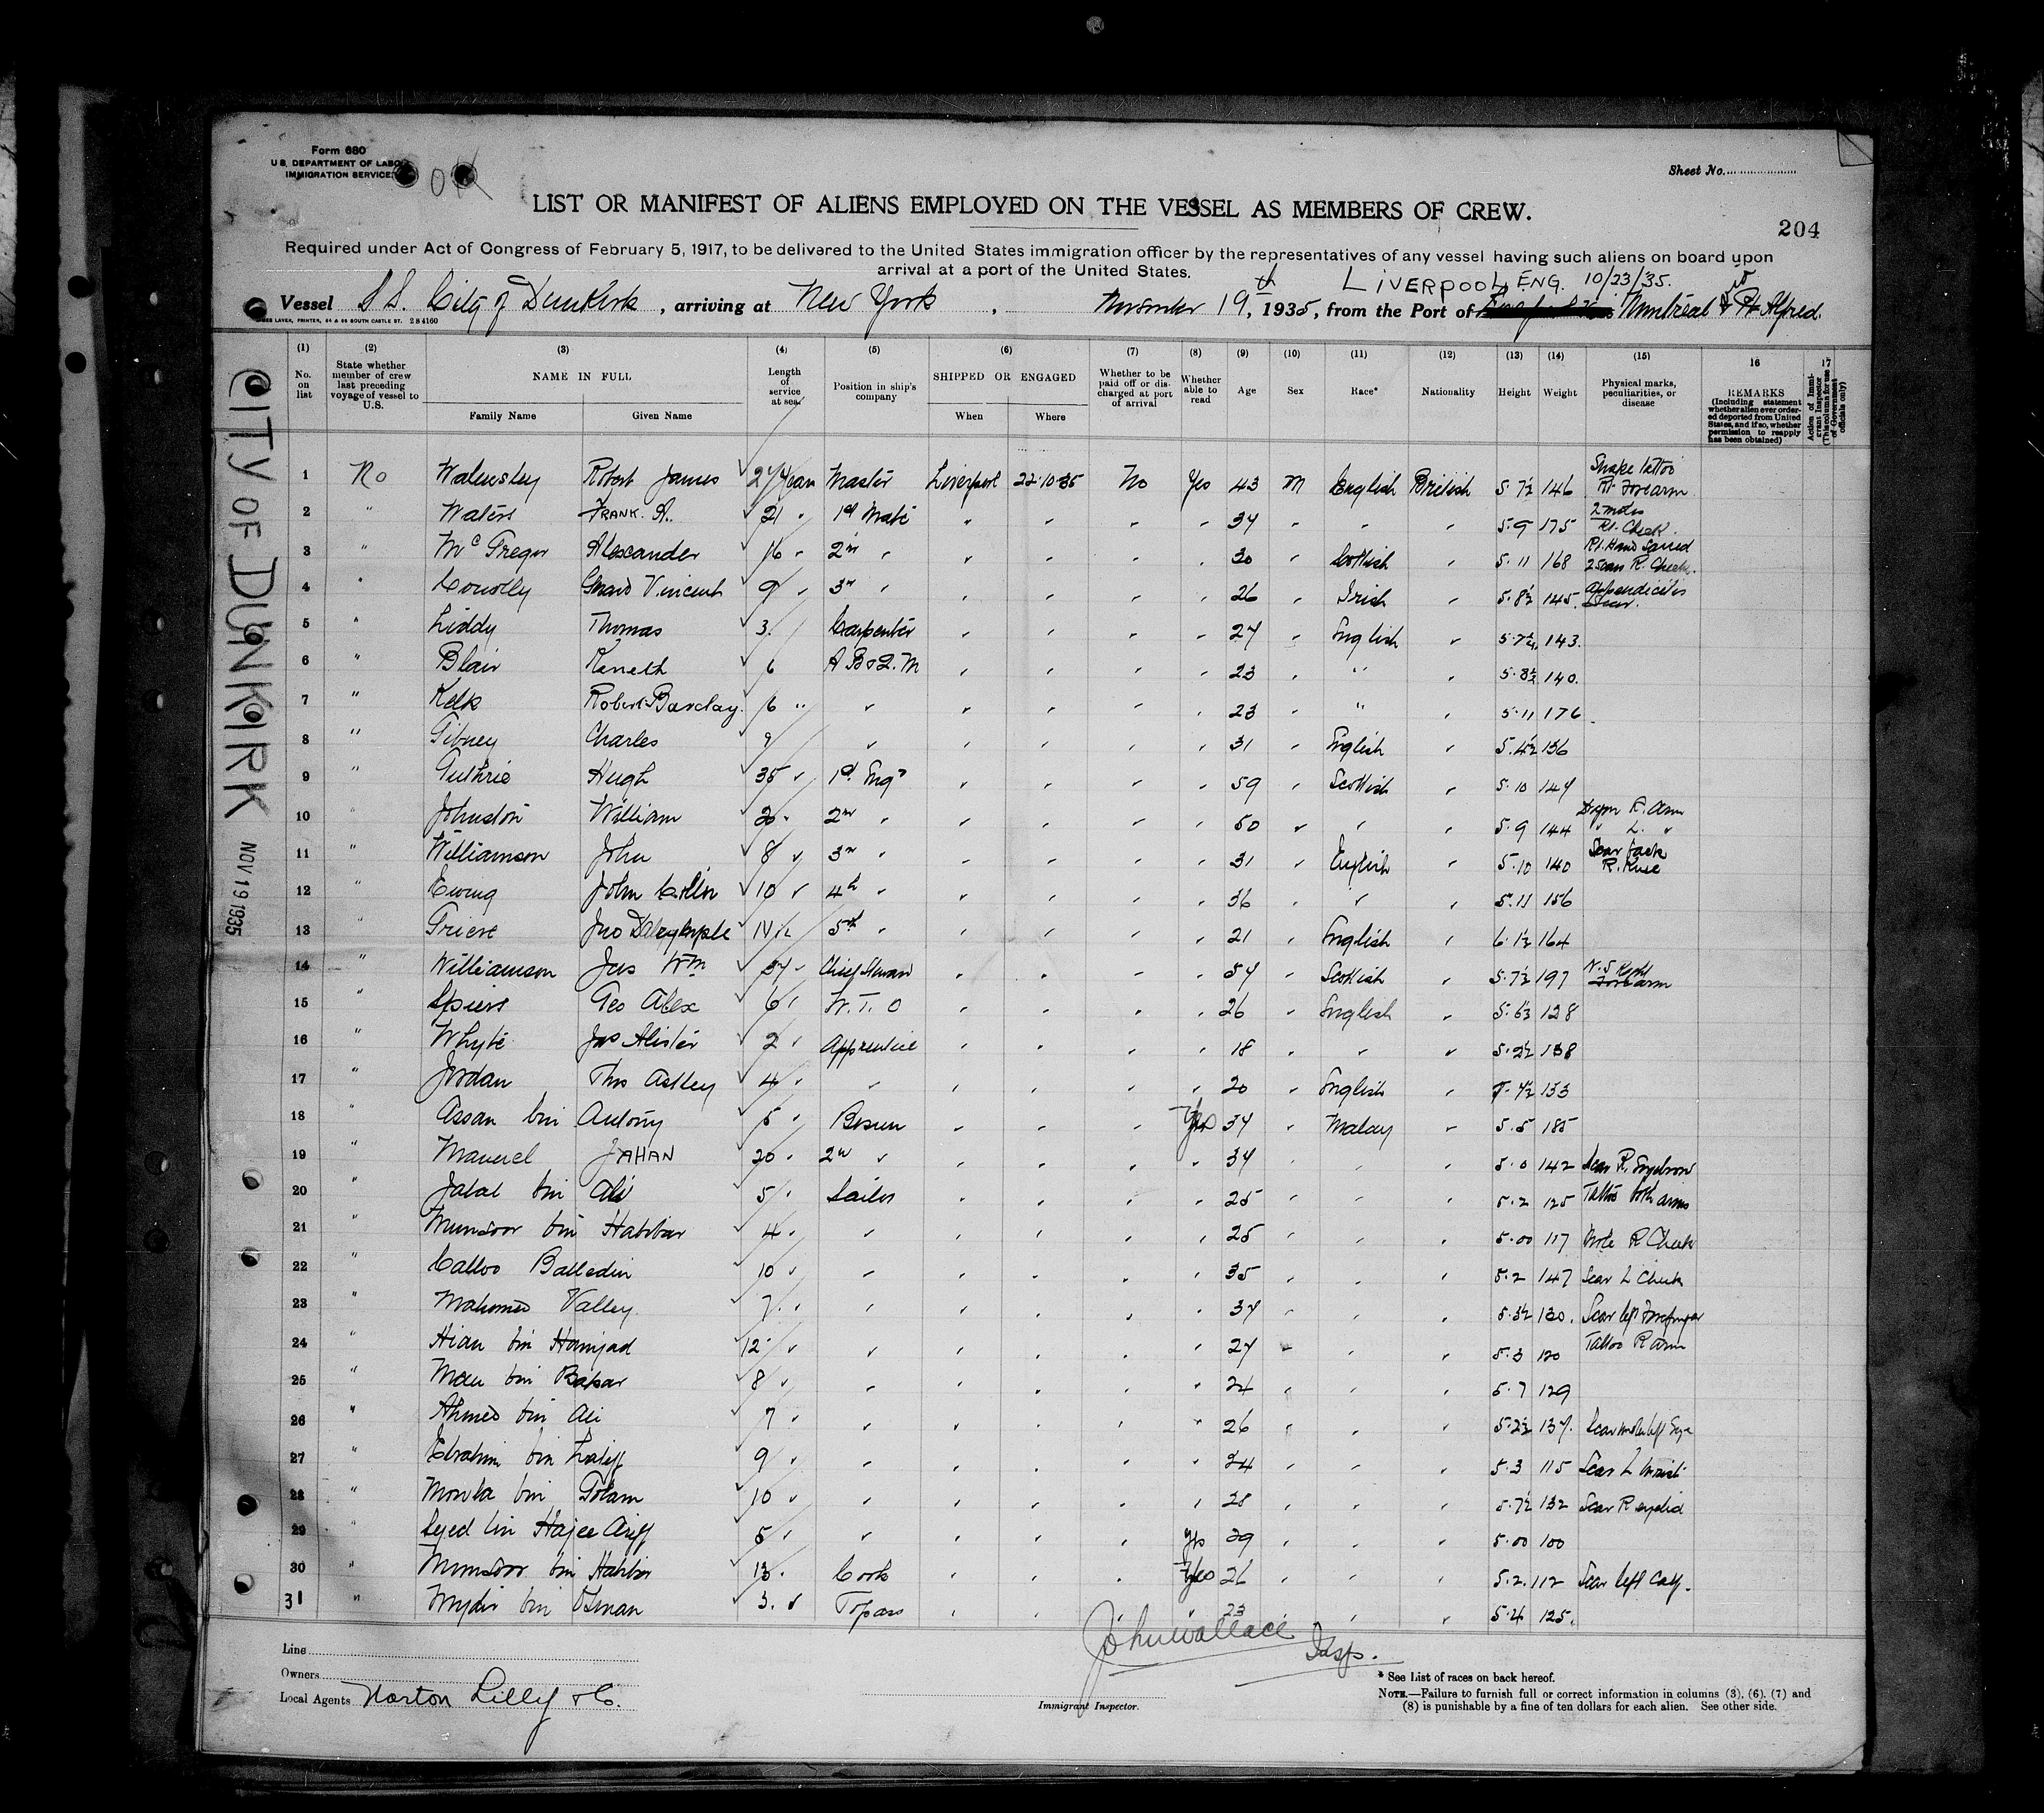 Form 680
U.S. DEPARTMENT OF LABOR
IMMIGRATION SERVICE
OK
Sheet No.
LIST OR MANIFEST OF ALIENS EMPLOYED ON THE VESSEL AS MEMBERS OF CREW.
204
Required under Act of Congress of February 5, 1917, to be delivered to the United States immigration officer by the representatives of any vessel having such aliens on board upon
arrival at a port of the United States.
LIVERPOOL, ENG. 10/23/35.
Vessel S.S. City of Dunkirk, arriving at New York, November 19th, 1935, from the Port of Montreal & Pt Alfred.
CITY OF DUNKIRK NOV 19 1935
(1) (2) (3) (4) (5) (6) (7) (8) (9) (10) (11) (12) (13) (14) (15) 16 17
No. on list
State whether member of crew last preceding voyage of vessel to U.S.
NAME IN FULL
Family Name Given Name
Length of service at sea
Position in ship's company
SHIPPED OR ENGAGED
When Where
Whether to be paid off or discharged at port of arrival
Whether able to read
Age
Sex
Race*
Nationality
Height
Weight
Physical marks, peculiarities, or disease
REMARKS
(Including statement whether alien ever ordered deported from United States, and if so, whether permission to reapply has been obtained)
Action of Immigrant Inspector (This column for use of Government officials only)
1 No Walmsley Robert James 27 Years Master Liverpool 22.10.35 No Yes 43 M English British 5 7½ 146 Snake tattoo Rt. Forearm
2 " Waters FRANK. A. 21 " 1st Mate " " " " 34 " " " 5.9 175 2 moles Rt. Cheek
3 " McGregor Alexander 16 " 2nd " " " " " 30 " Scottish " 5.11 168 Rt. Hand 2 Scars R. Cheek.
4 " Conolly Gerard Vincent 9 " 3rd " " " " " 26 " Irish " 5.8½ 145. Appendicitis Scar.
5 " Liddy Thomas 3. Carpenter " " " " 27 " English " 143.
6 " Blair Keneth 6 " " " " 23 " " " 5.8½ 140.
7 " Kelk Robert Barclay. 6 " " " " " " 23 " " " 5.11 176
8 " Gibney Charles 9 " " " " " 31 " English " 5.4½ 136
9 " Guthrie Hugh 35 " 1st Engr " " " " 59 " Scottish " 5.10 149
10 " Johnston William 20 " 2nd " " " " " 50 " " " 5.9 144 R. Arm " L. "
11 " Williamson John 8 " 3rd " " " " " 31 " English " 5.10 140 Scar back R. Knee
12 " Ewing John 10 " 4th " " " " " 36 " " " 5.11 156
13 " Grieve Jno Dalrymple 5th " " " " " 21 " English " 6.1½ 164
14 " Williamson Jas Wm 37 " Chief Steward " " " " 54 " Scottish " 5.7½ 197 Forearm
15 " Spiers Geo Alex 6 " W.T.O " " " " 26 " English " 5.6½ 128
16 " Whyte Jas Alister 2 " Apprentice " " " " 18 " " " 5.2½ 138
17 " Jordan Thos Astley 4 " " " " " " 20 " English " 133
18 " Assan bin Antony 5 " Bosun " " " Yes 34 " Malay " 5.5 185
19 " Manuel JAHAN 20 " 2nd " " " " " 34 " " " 5.0 142 Scar R. Eyebrow
20 " Jalal bin Ali 5 " Sailor " " " " 25 " " " 5.2 125 Tattoo both arms
21 " Munsoor bin Habibar 4 " " " " " " 25 " " " 5.00 117 Mole R Cheek
22 " Calloo Balledin 10 " " " " " " 35 " " " 5.2 147 Scar L Cheek
23 " Mahomed Valley 7 " " " " " " 34 " " " 5.3½ 130. Scar left Forefinger
24 " Hian bin Hamjad 12 " " " " " " 24 " " " 5.3 120 Tattoo R Arm
25 " Man bin Bakar 8 " " " " " " 24 " " " 5.7 129
26 " Ahmed bin Ali 7 " " " " " " 26 " " " 5.2½ 137. Scar under left Eye
27 " Ebrahim bin Latiff 9 " " " " " " 24 " " " 5.3 115 Scar L Wrist
28 " Mowla bin Golam 10 " " " " " " 28 " " " 5.7½ 132 Scar R eyelid
29 " Syed bin Hajee Ariff 5 " " " " " Yes 29 " " " 5.00 100
30 " Munsoor bin Habibar 13 " Cook " " " Yes 26 " " " 5.2. 112 Scar left Calf.
31 " Mydin bin Osman 3. " Topas " " " " 23 " " " 5.4 125.
Line
Owners
Local Agents Norton Lilly & Co.
John Wallace Insp.
Immigrant Inspector.
* See List of races on back hereof.
NOTE.—Failure to furnish full or correct information in columns (3), (6), (7) and
(8) is punishable by a fine of ten dollars for each alien. See other side.